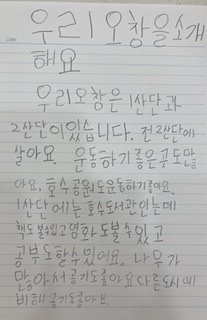 우리 오창을 소개
해요
우리 오창은 1산단과
2산단이 있습니다. 전 2산단에
살아요. 운동하기 좋은 곳도 많
아요. 호수공원도 운동하기 좋아요.
1산단에는 호수도서관인는데
책도 볼수 있고 영화도 볼수 있고
공부도 할수 있어요. 나무가
만아서 공기도 좋아요 다른 도시에
비해 공기도 좋아요.